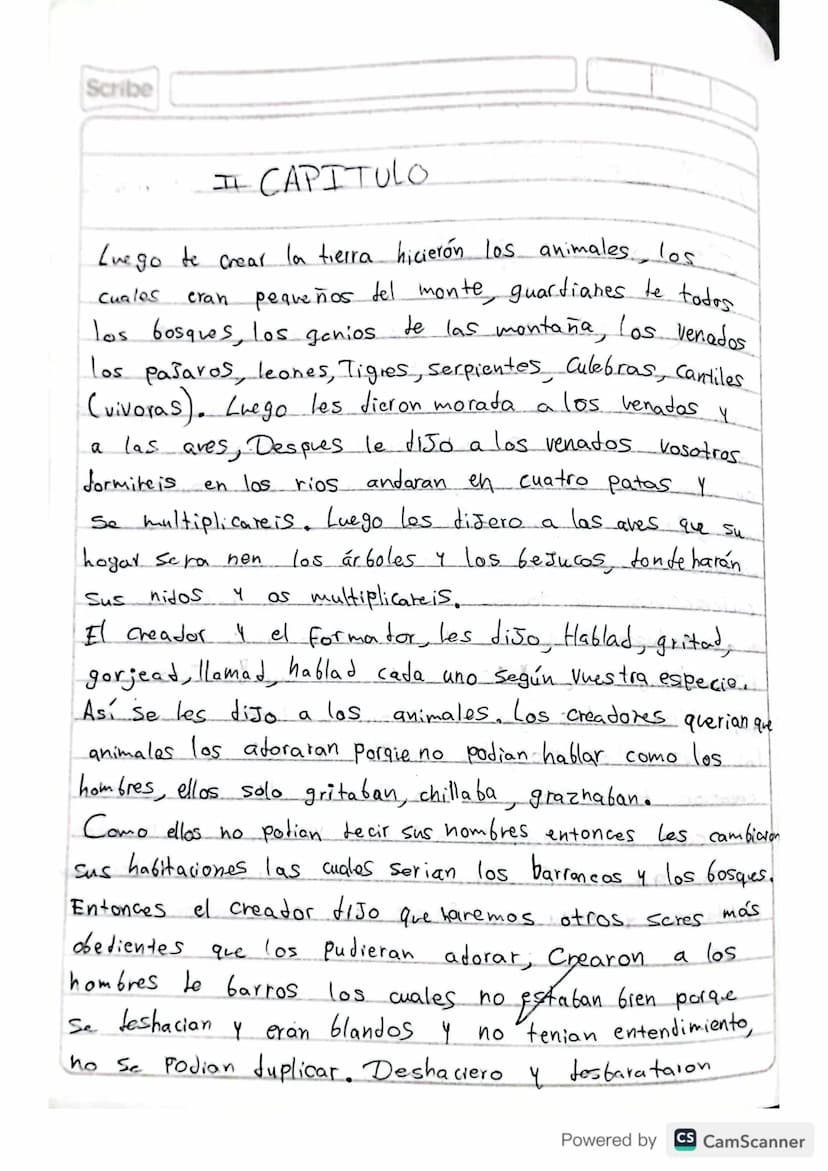 Scribe
II CAPITULO
Luego de crear la tierra hicierón los animales, los
cuales eran pequeños del monte, guardianes de todos
los bosques, los genios de las montaña, los venados
los pasaros, leones, Tigres, serpientes, Culebras, Cantiles
(vivoras). Luego les dieron morada a los venados y
a las aves, Despues le diJo a los venados vosotros
dormireis en los rios andaran en cuatro patas y
se multiplicareis. Luego les diJero a las aves que su
hogar sera nen los árboles y los beJucos, donde harán
sus nidos y os multiplicareis.
El creador y el formador, les diJo, Hablad, gritad,
gorjead, llamad, hablad cada uno según vuestra especie.
Así se les diJo a los animales. Los creadores querian que
animales los adoraran porqie no podian hablar como los
hombres, ellos solo gritaban, chillaba, graznaban.
Como ellos no podian decir sus nombres entonces les cambiaron
sus habitaciones las cuales serian los barrancos y los bosques.
Entonces el creador diJo que haremos otros seres más
obedientes que los pudieran adorar, Crearon a los
hombres de barros los cuales no estaban bien porque
se deshacian y eran blandos y no tenian entendimiento,
no se podian duplicar. Deshaciero y desbarataron
Powered by CS CamScanner